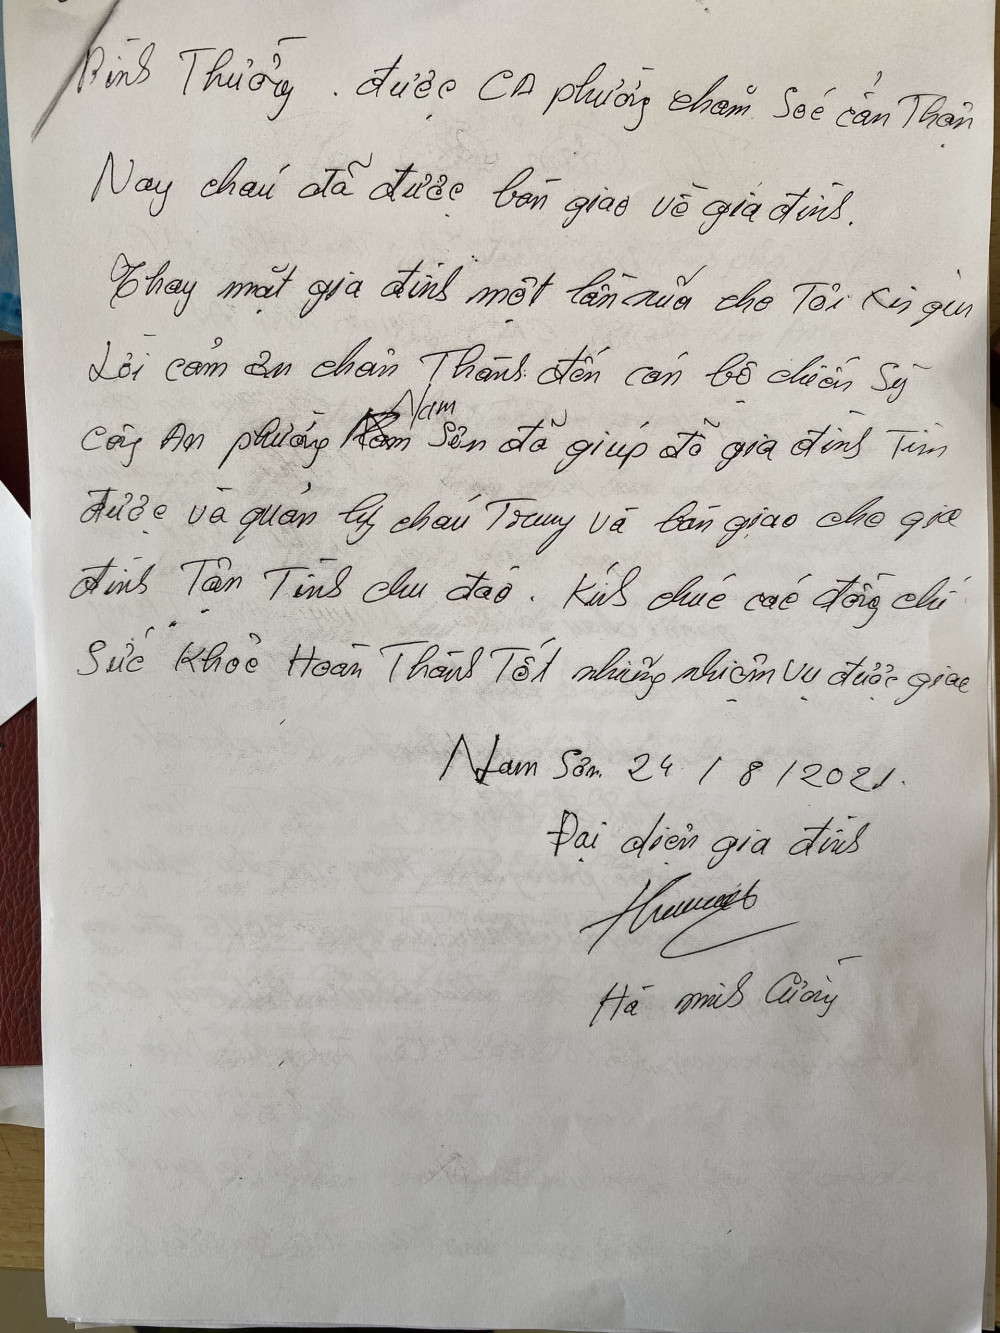 Bình Thường. được CA phường chăm Soć cẩn Thận
Nay cháu đã được bàn giao về gia đình.
Thay mặt gia đình một lần nữa cho Tôi Kín gửi
Lời cảm ơn chân Thành đến cán bộ chiến Sỹ
Công An phường Nam Sơn đã giúp đỡ gia đình Tìm
được và quản lý cháu Trung và bàn giao cho gia
đình Tận Tình chu đáo. Kính chúc các đồng chí
Sức Khoẻ Hoàn Thành Tốt những nhiệm vụ được giao
Nam Sơn. 24 / 8 / 2021.
Đại diện gia đình
Hà minh Cường